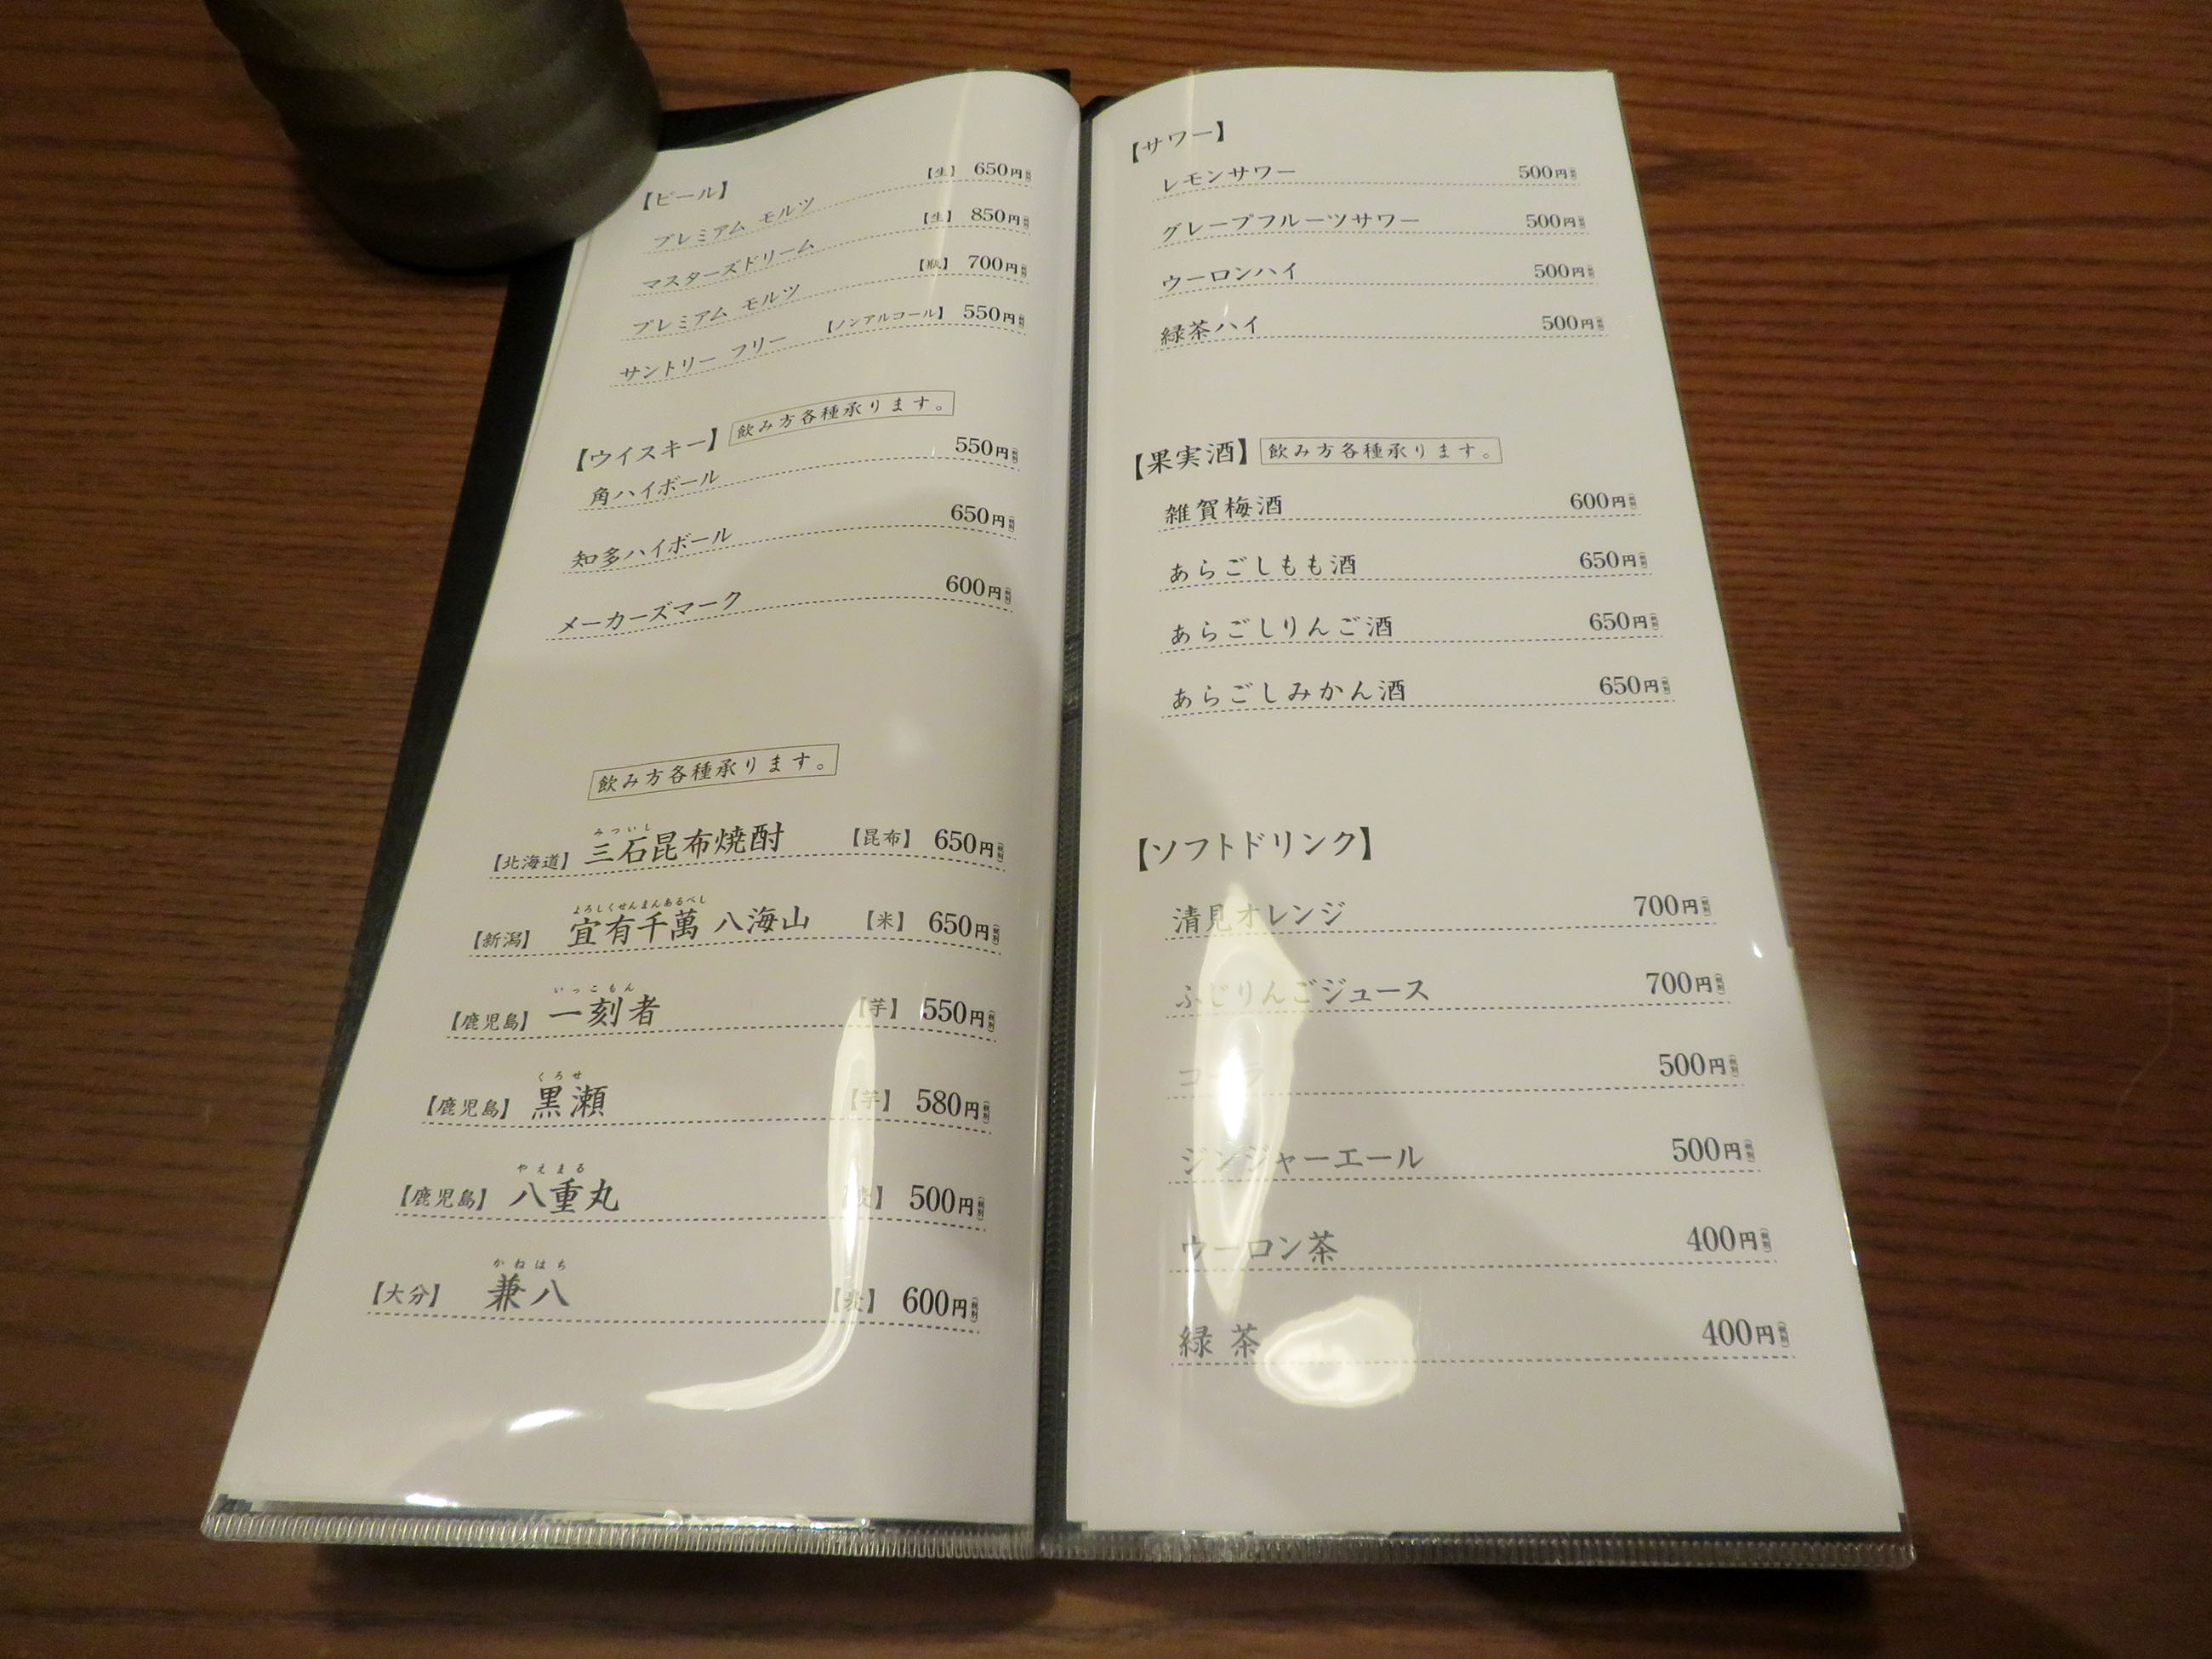 【ビール】
プレミアム モルツ 【生】 650円(税別)
マスターズドリーム 【生】 850円(税別)
プレミアム モルツ 【瓶】 700円(税別)
サントリー フリー 【ノンアルコール】 550円(税別)
【ウイスキー】 飲み方各種承ります。
角ハイボール 550円(税別)
知多ハイボール 650円(税別)
メーカーズマーク 600円(税別)
飲み方各種承ります。
みついし
【北海道】 三石昆布焼酎 【昆布】 650円(税別)
よろしくせんまんあるべし
【新潟】 宜有千萬 八海山 【米】 650円(税別)
いっこもん
【鹿児島】 一刻者 【芋】 550円(税別)
くろせ
【鹿児島】 黒瀬 【芋】 580円(税別)
やえまる
【鹿児島】 八重丸 【麦】 500円(税別)
かねはち
【大分】 兼八 【麦】 600円(税別)
【サワー】
レモンサワー 500円(税別)
グレープフルーツサワー 500円(税別)
ウーロンハイ 500円(税別)
緑茶ハイ 500円(税別)
【果実酒】 飲み方各種承ります。
雑賀梅酒 600円(税別)
あらごしもも酒 650円(税別)
あらごしりんご酒 650円(税別)
あらごしみかん酒 650円(税別)
【ソフトドリンク】
清見オレンジ 700円(税別)
ふじりんごジュース 700円(税別)
コーラ 500円(税別)
ジンジャーエール 500円(税別)
ウーロン茶 400円(税別)
緑 茶 400円(税別)